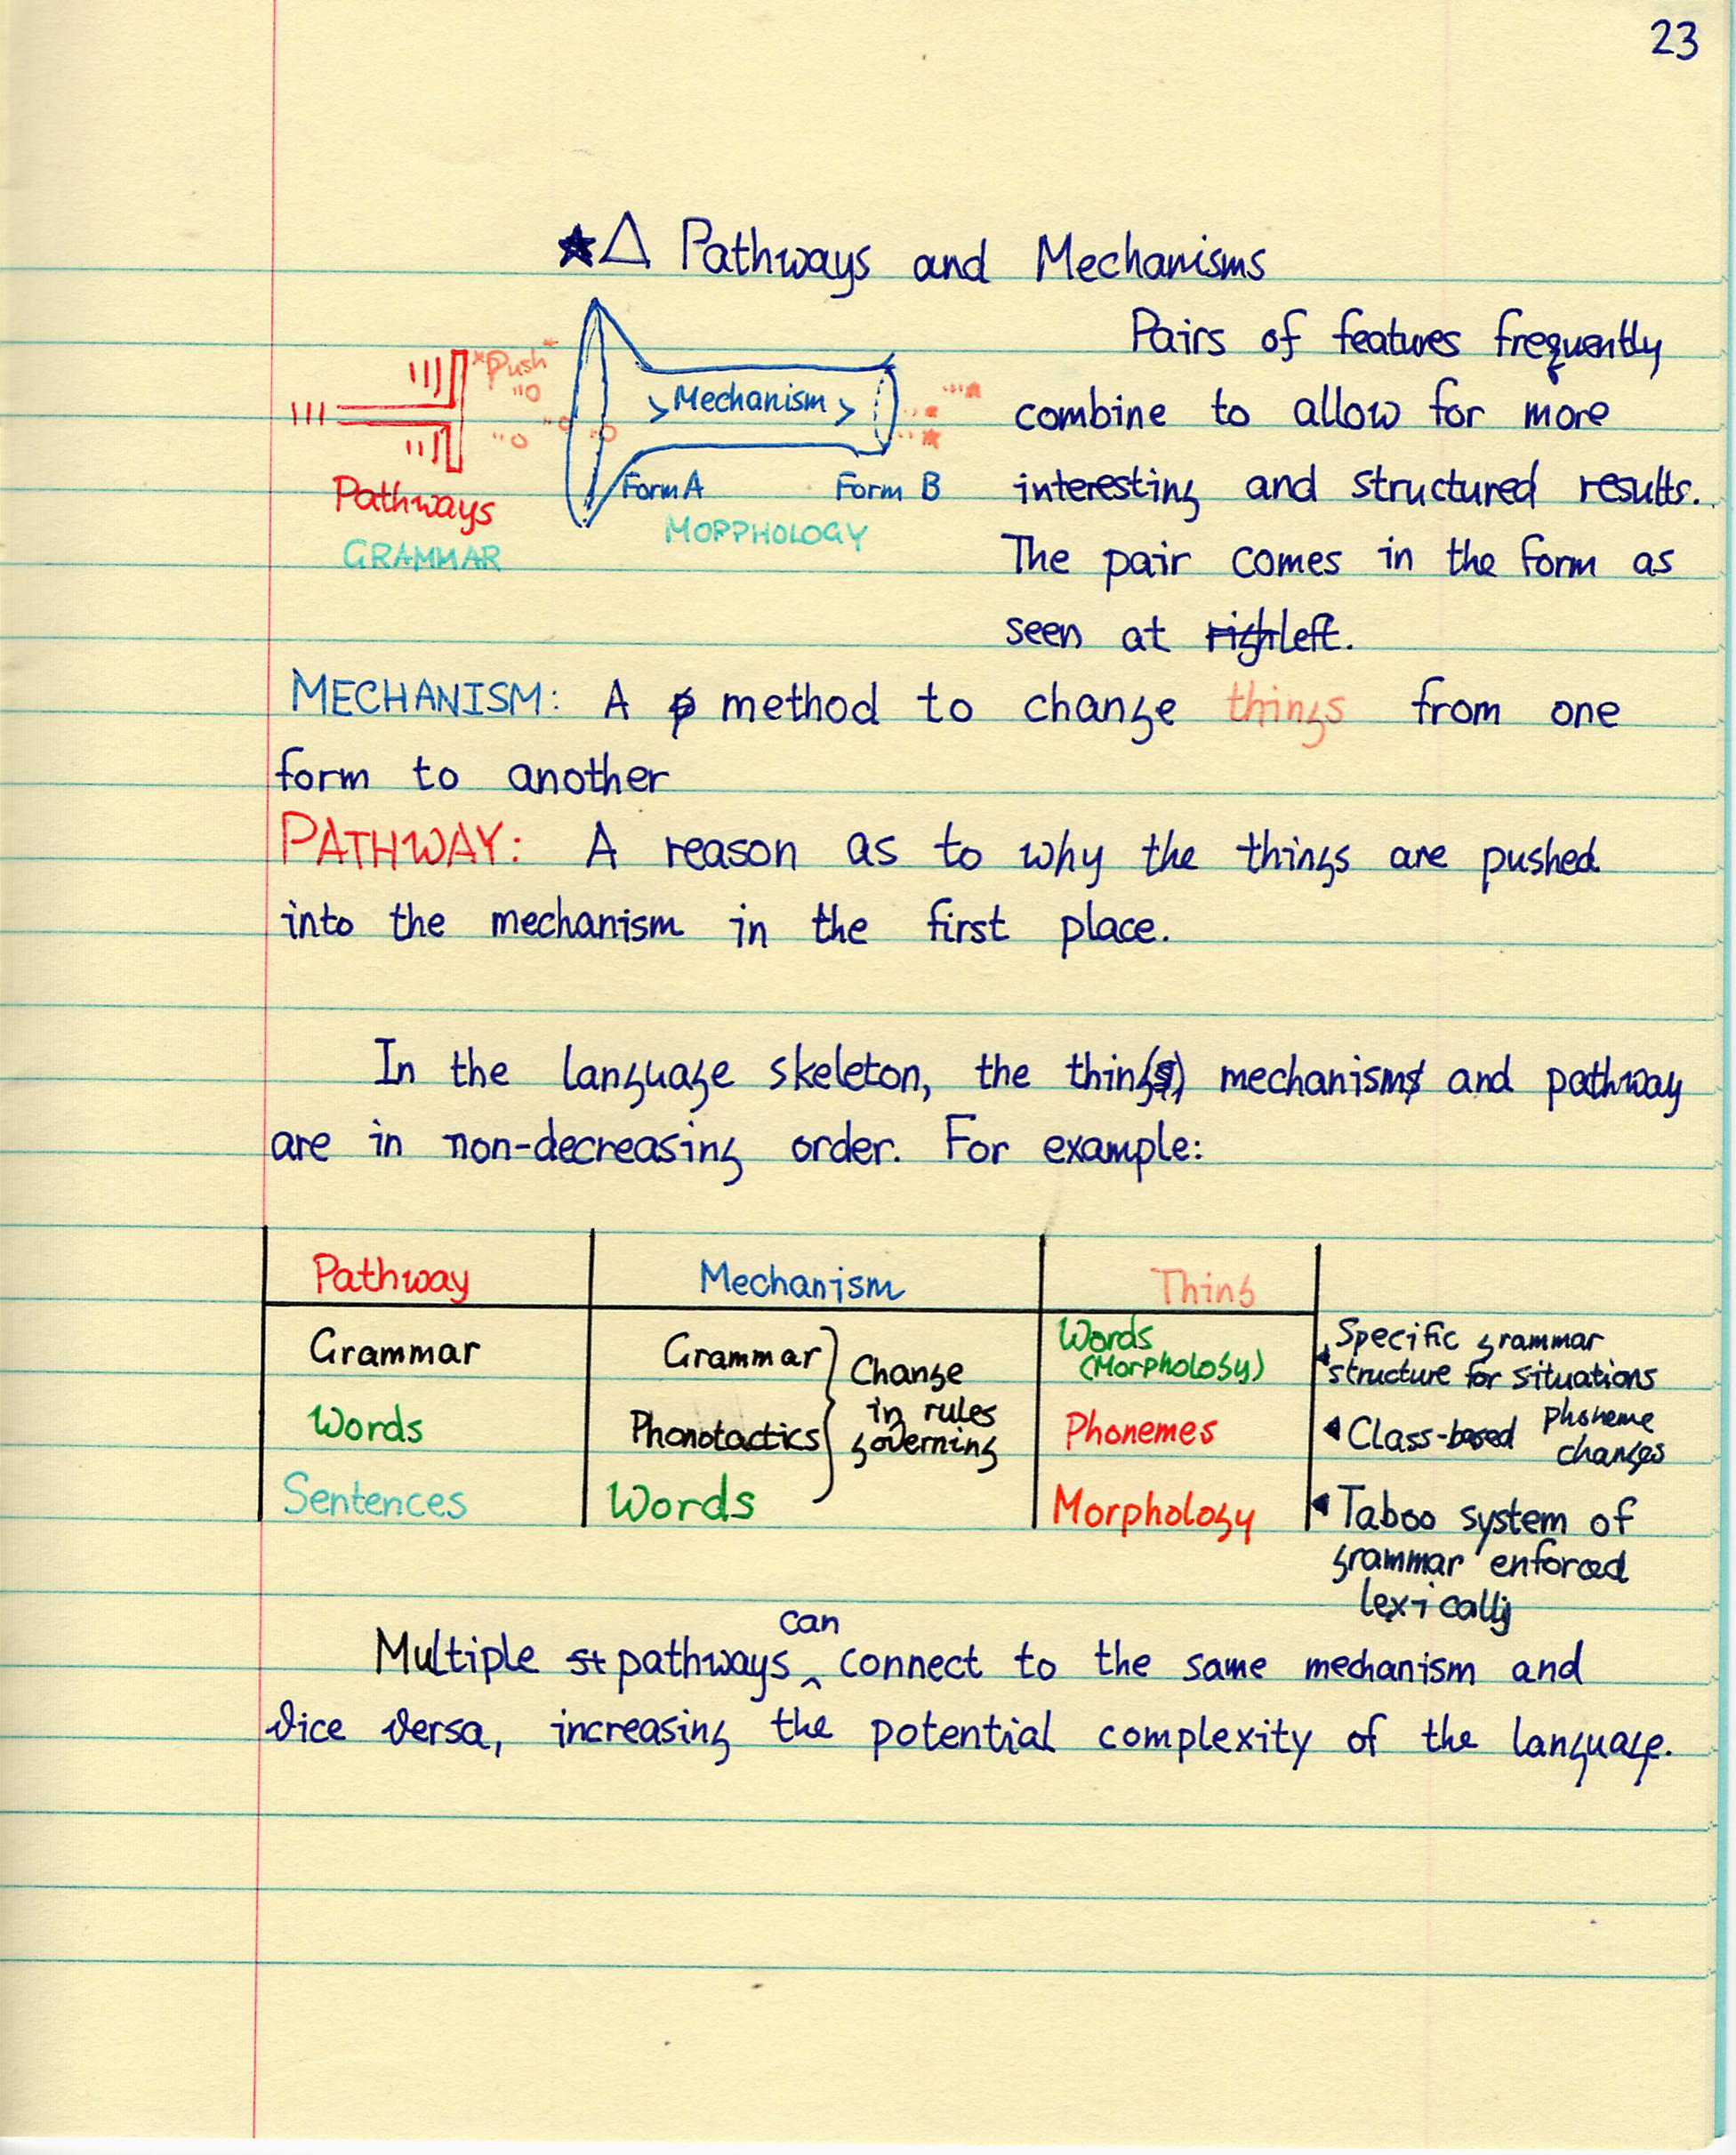 23
★△ Pathways and Mechanisms
*Push*
>Mechanism>
Form A Form B
Pathways
GRAMMAR
MORPHOLOGY
Pairs of features frequently
combine to allow for more
interesting and structured results.
The pair comes in the form as
seen at righ left.
MECHANISM: A p method to change things from one
form to another
PATHWAY: A reason as to why the things are pushed
into the mechanism in the first place.
In the language skeleton, the thing(s) mechanisms and pathway
are in non-decreasing order. For example:
Pathway Mechanism Thing
Grammar Grammar Words
(Morphology)
Words Phonotactics Phonemes
Sentences Words Morphology
Change
in rules
governing
Specific grammar
structure for situations
Class-based phoneme
changes
Taboo system of
grammar enforced
lexically
Multiple st pathways can connect to the same mechanism and
vice versa, increasing the potential complexity of the language.